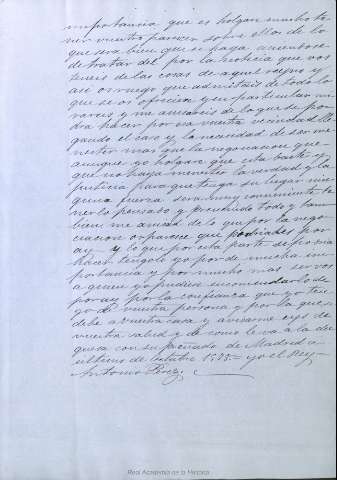 importancia que es holgare mucho te-
ner vuestro parecer sobre ello de lo
que sera bien que se haga acuerdose
de tratar del por la noticia que vos
teneis de las cosas de aquel reyno y
asi os ruego que admitais de todo lo
que se os ofreciere y en particular mi-
rareis y me avisareis de lo que se po-
dra hacer por esa vuestra vecindad lle-
gando el caso y la necesidad de ser me-
nester mas que la negociacion que
aunque yo holgare que esta baste y
que no haya menester la verdad y la
justicia para que tenga su lugar nin-
guna fuerza sera muy conveniente te-
nerlo pensado y prevenido todo y tam-
bien me avisad de si por la nego-
ciacion os parece que podriades por
ay y lo que por esta parte de
hacer tengolo yo por de mucha im-
portancia y por mucho mas ser vos
a quien yo pudiese encomendarlo de
por ay por la confianza que yo ten-
go de vuestra persona y por la que se
debe a vuestra casa y avisarme eys de
vuestra salud y de como le va a la du-
quesa con su preñado de Madrid a
ultimo de Octubre 1578.= yo el Rey=
Antonio Perez.
Real Academia de la Historia